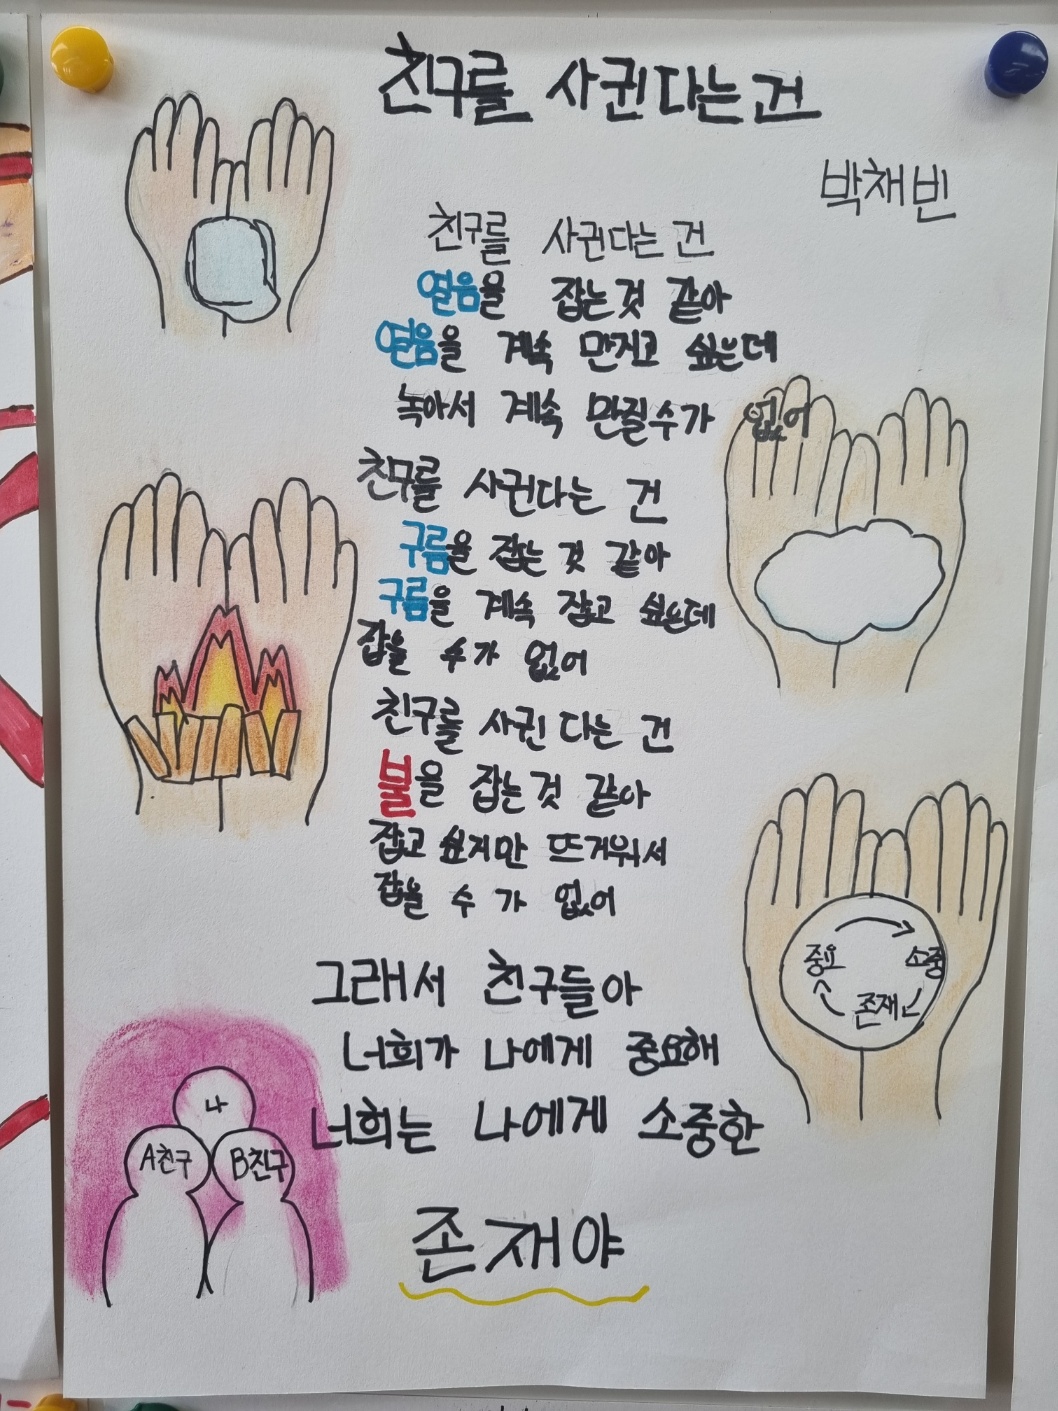 친구를 사귄다는건
박채빈
친구를 사귄다는 건
얼음을 잡는것 같아
얼음을 계속 만지고 싶은데
녹아서 계속 만질수가 없어
친구를 사귄다는 건
구름을 잡는 것 같아
구름을 계속 잡고 싶은데
잡을 수가 없어
친구를 사귄 다는 건
불을 잡는것 같아
잡고 싶지만 뜨거워서
잡을 수 가 없어
중요 소중
존재
그래서 친구들아
너희가 나에게 중요해
너희는 나에게 소중한
존재야
나
A친구 B친구